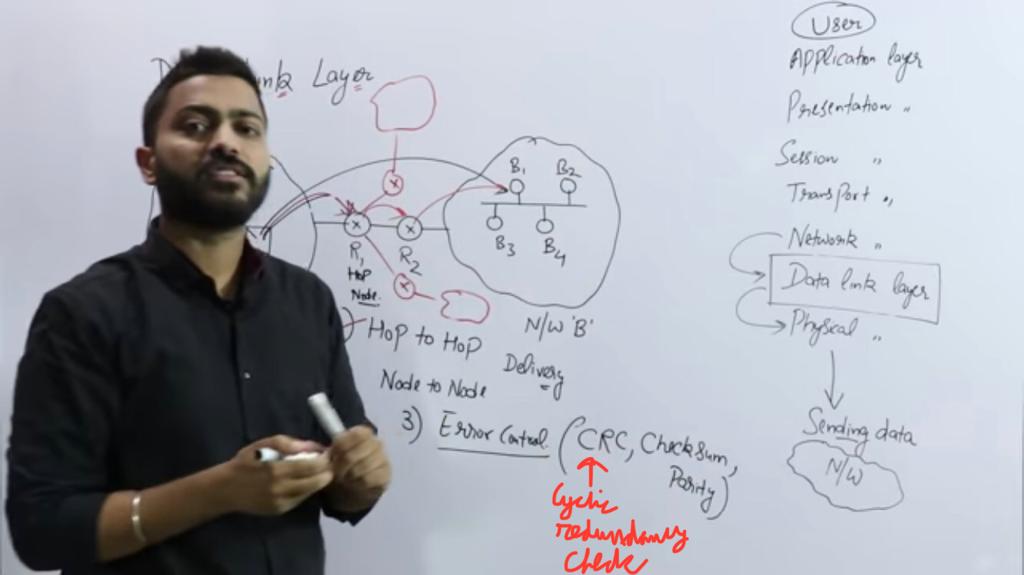 Link Layer
B1 B2
B3 B4
R1 R2
Hop
Node
N/W 'B'
Hop to Hop
Delivery
Node to Node
3) Error Control (CRC, Checksum,
Parity)
Cyclic
redundancy
check
User
Application layer
Presentation "
Session "
Transport "
Network "
Data link layer
Physical "
Sending data
N/W